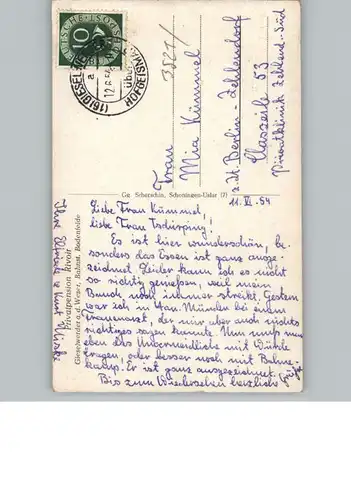 DEUTSCHE BUNDESPOST
10
(16) GIESEL
a
12.6.54
über
HOFGEISMAR
3521/
Frau
Mia Kümmel
z. Zt. Berlin-Zehlendorf
53
Privatklinik Zehlend.-Süd
Gg. Scherschin, Schoningen-Uslar (7)
11. VI. 54
Liebe Frau Kümmel,
liebe Frau Tschirping!
Es ist hier wunderschön, be-
sonders das Essen ist ganz ausge-
zeichnet. Leider kann ich es nicht
so richtig genießen, weil mein
Bauch noch immer streikt. Gestern
war ich in Han. Münden bei einem
Frauenarzt der mir aber auch nichts
richtiges sagen konnte. Nun muß man
eben das Unvermeidliche mit Würde
tragen, oder besser noch mit
Er ist ganz ausgezeichnet.
Bis zum Wiedersehen herzliche Grüße
Ihre
Privatpension Rivoir
Gieselwerder a. d. Weser, Bahnst. Bodenfelde